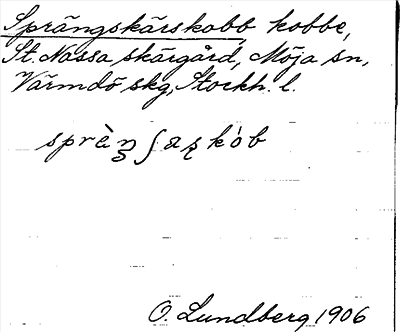 Sprängskärskobb kobbe,
St. Nassa skärgård, Möja sn,
Värmdö skg, Stockh. l.
sprὰŋʃaʂkob
O. Lundberg 1906